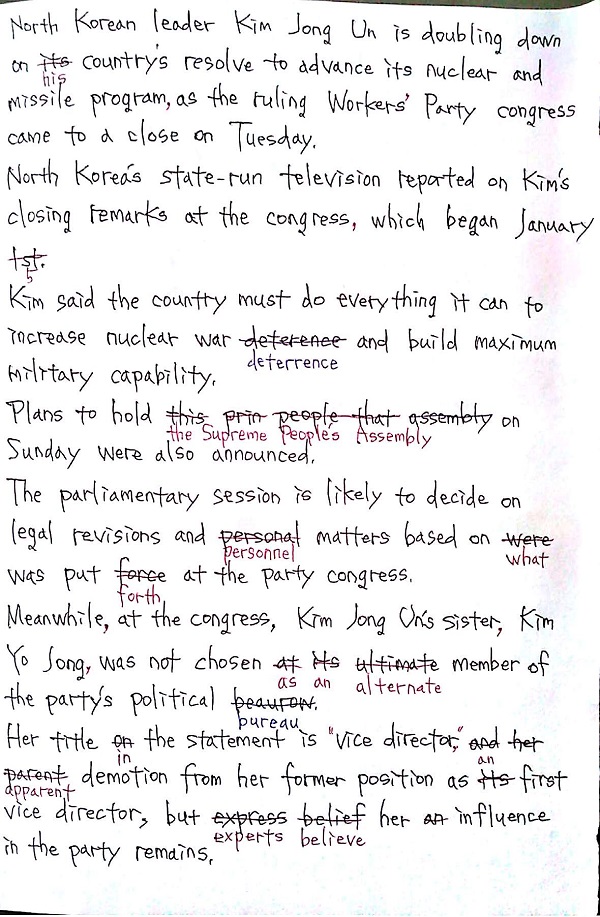 North Korean leader Kim Jong Un is doubling down
on its country's resolve to advance its nuclear and
his
missile program, as the ruling Workers' Party congress
came to a close on Tuesday.
North Korea's state-run television reported on Kim's
closing remarks at the congress, which began January
1st.
5
Kim said the country must do everything it can to
increase nuclear war deterence and build maximum
deterrence
military capability.
Plans to hold this prin people that assembly on
the Supreme People's Assembly
Sunday were also announced.
The parliamentary session is likely to decide on
legal revisions and personal matters based on were
personnel what
was put force at the party congress.
forth
Meanwhile, at the congress, Kim Jong Un's sister, Kim
Yo Jong, was not chosen at its ultimate member of
as an alternate
the party's political beaurow.
bureau
Her title on the statement is "vice director," and her
in an
parent demotion from her former position as its first
apparent
vice director, but express belief her an influence
experts believe
in the party remains.